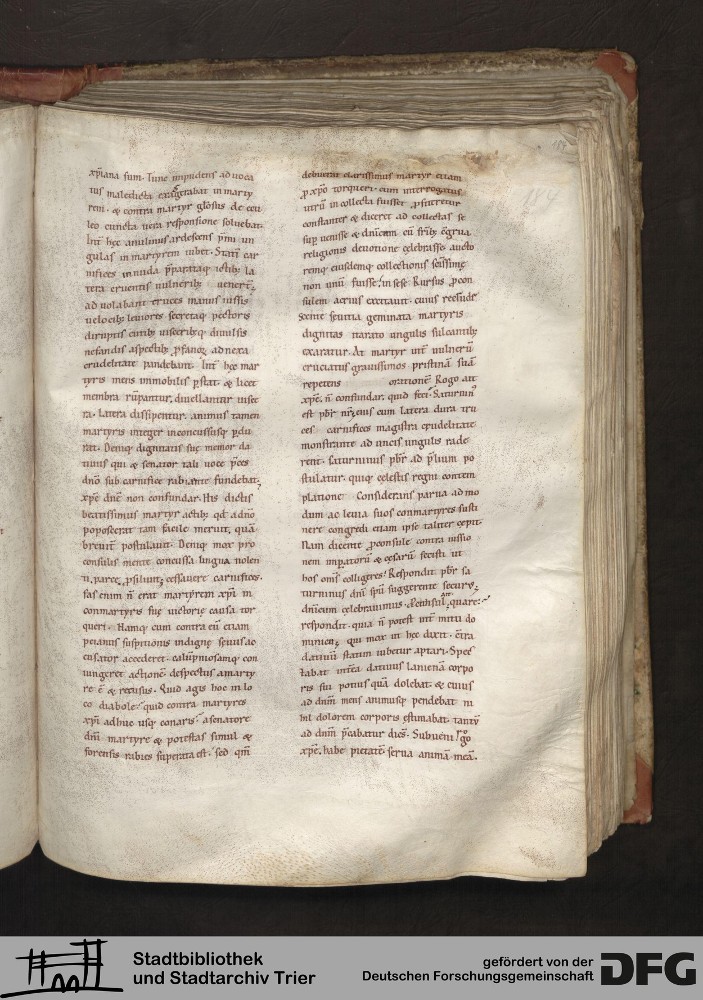 xp̄iana sum. Tunc impudens aduoca
tus maledicta exag̊erabat in marty
rem. & contra martyr gl̄osus de cęu
leo cuncta uera responsione soluebat.
Int̄ hęc anulinus ardescens p̄mi un
gulas in martyrem iubet. Statī car
nifices in nuda p̄parataq; ictib; la
tera cruentis uulnerib; uenert̄;
aduolabant truces manus iussis
uelocib; leuiores secretaq; pectoris
diruptis cutib; uiscerib;q; diuulsis
nefandis aspectib; p̱fanoꝝ adnexa
crudelitate pandebant. Int̄ hęc mar
tyris mens immobilis p̱stat. & licet
membra rūpantur, diuellantur uisce
ra. Latera dissipentur. animus tamen
martyris integer inconcussusq; p̱du
rat. Deniq; dignitatis suę memor da
tiuus qui & senator tali uoce p̄ces
dn̄o sub carnifice rabiante fundebat.
xp̄e dn̄e non confundar. His dictis
beatissimus martyr actib; qđ a dn̄o
poposcerat tam facile meruit, quā
breuit̄ postulauit. Deniq; mox pro
consulis mente concussa lingua nolen
ti, parce, p̱siliuit; cessauere carnifices.
fas enim n̄ erat martyrem xp̄i in
conmartyris suę uictorię causa tor
queri. Hamq; cum contra eū etiam
peianus suspitionis indignę seuus ac
cusator accederet. calūpniosamq; con
iungeret actionē. despectus a marty
re ē & recusus. Quid agis hoc in lo
co diabole? quid contra martyres
xp̄i adhuc usq; conaris? a senatore
dn̄i martyre & potestas simul &
forensis rabies superata est. sed qm̄
debuerat clarissimus martyr etiam
p̱ xp̄o torqueri. cum interrogatus
utrū in collecta fuisset p̱fiteretur
constanter & diceret ad collectas se
sup̱ uenisse & dn̄icum cū frīb; c̄grua
religionis deuotione celebrasse aucto
remq; eiusdemq; collectionis scīssimę
non unū fuisse. in sese Rursus p̱con
sulem acrius excitauit. cuius recrude
scente seuitia geminata martyris
dignitas narato ungulis sulcantib;
exaratur. At martyr int̄ uulnerū
cruciatus grauissimos pristinā suā
repetens orationē Rogo ait
xp̄e. n̄ confundar. quid feci? Saturninꝰ
est pb̄r nr̄ eius cum latera dura tru
ces carnifices magistra crudelitate
monstrante ad uncis ungulis rade
rent. saturninus pb̄r ad p̱lium po
stulatur. quiq; celestis regni contem
platione Considerans parua ad mo
dum ac leuia suos conmartyres susti
nere congredi etiam ipse taliter cępit.
Nam dicente p̱consule contra iussio
nem imp̱atorū & cęsarū fecisti ut
hos om̄s colligeres? Respondit pb̄r sa
turninus dn̄i sp̄ū suggerente secure;
dn̄icum celebrauimus. Proconsul ait. quare?
respondit. quia n̄ potest int̄ mitti do
minicū; qui mox ut hęc dixit. c̄tra
datiuū statim iubetur aptari. Spec
tabat int̄ea datiuus lanienā corpo
ris sui potius quā dolebat. & cuius
ad dn̄m mens animusq; pendebat ni
hil dolorem corporis estimabat. tantū
ad dn̄m p̄cabatur dicēs. Subueni rogo
xp̄e. habe pietatē serua animā meā.
Stadtbibliothek
und Stadtarchiv Trier
gefördert von der
Deutschen Forschungsgemeinschaft
DFG